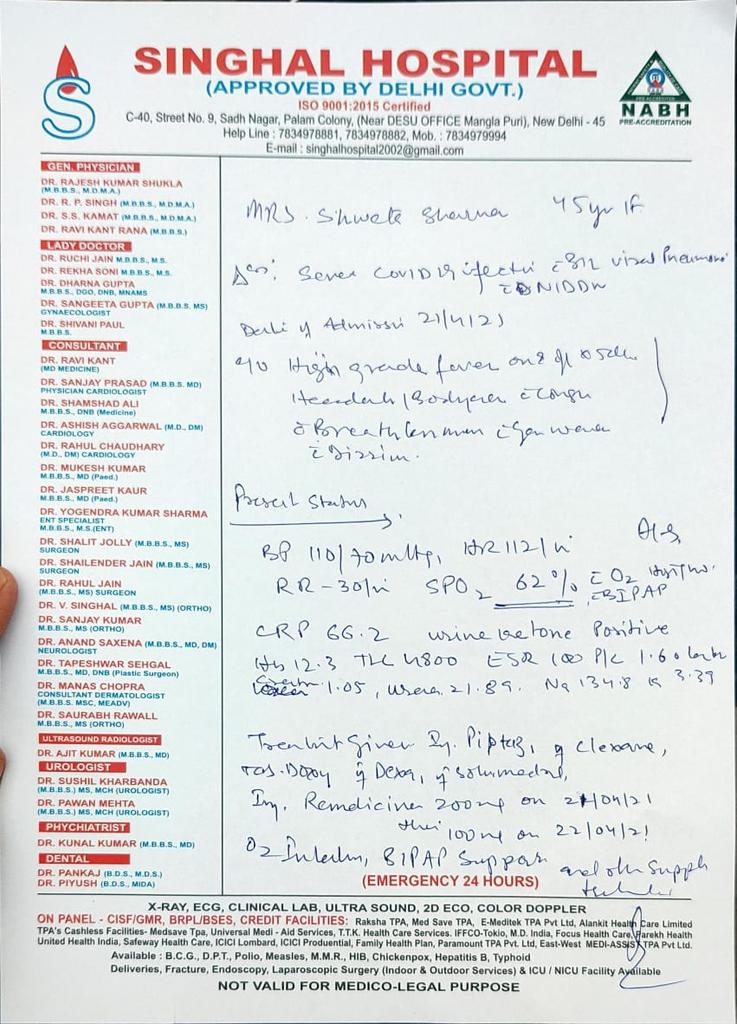 SINGHAL HOSPITAL
(APPROVED BY DELHI GOVT.)
ISO 9001:2015 Certified
C-40, Street No. 9, Sadh Nagar, Palam Colony, (Near DESU OFFICE Mangla Puri), New Delhi - 45
Help Line : 7834978881, 7834978882, Mob. : 7834979994
E-mail : singhalhospital2002@gmail.com
S
NABH
PRE-ACCREDITATION
GEN. PHYSICIAN
DR. RAJESH KUMAR SHUKLA
(M.B.B.S., M.D.M.A.)
DR. R. P. SINGH (M.B.B.S., M.D.M.A.)
DR. S.S. KAMAT (M.B.B.S., M.D.M.A.)
DR. RAVI KANT RANA (M.B.B.S.)
LADY DOCTOR
DR. RUCHI JAIN M.B.B.S., M.S.
DR. REKHA SONI M.B.B.S., M.S.
DR. DHARNA GUPTA
M.B.B.S., DGO, DNB, MNAMS
DR. SANGEETA GUPTA (M.B.B.S. MS)
GYNAECOLOGIST
DR. SHIVANI PAUL
M.B.B.S.
CONSULTANT
DR. RAVI KANT
(MD MEDICINE)
DR. SANJAY PRASAD (M.B.B.S. MD)
PHYSICIAN CARDIOLOGIST
DR. SHAMSHAD ALI
M.B.B.S., DNB (Medicine)
DR. ASHISH AGGARWAL (M.D., DM)
CARDIOLOGY
DR. RAHUL CHAUDHARY
(M.D., DM) CARDIOLOGY
DR. MUKESH KUMAR
M.B.B.S., MD (Paed.)
DR. JASPREET KAUR
M.B.B.S., MD (Paed.)
DR. YOGENDRA KUMAR SHARMA
ENT SPECIALIST
M.B.B.S., M.S.(ENT)
DR. SHALIT JOLLY (M.B.B.S., MS)
SURGEON
DR. SHAILENDER JAIN (M.B.B.S., MS)
SURGEON
DR. RAHUL JAIN
(M.B.B.S., MS) SURGEON
DR. V. SINGHAL (M.B.B.S., MS) (ORTHO)
DR. SANJAY KUMAR
M.B.B.S., MS (ORTHO)
DR. ANAND SAXENA (M.B.B.S., MD, DM)
NEUROLOGIST
DR. TAPESHWAR SEHGAL
M.B.B.S., MD, DNB (Plastic Surgeon)
DR. MANAS CHOPRA
CONSULTANT DERMATOLOGIST
(M.B.B.S. MSC, MEADV)
DR. SAURABH RAWALL
M.B.B.S., MS (ORTHO)
ULTRASOUND RADIOLOGIST
DR. AJIT KUMAR (M.B.B.S., MD)
UROLOGIST
DR. SUSHIL KHARBANDA
(M.B.B.S.) MS, MCH (UROLOGIST)
DR. PAWAN MEHTA
(M.B.B.S.) MS, MCH (UROLOGIST)
PHYCHIATRIST
DR. KUNAL KUMAR (M.B.B.S., MD)
DENTAL
DR. PANKAJ (B.D.S., M.D.S.)
DR. PIYUSH (B.D.S., MIDA)
MRS. Shweta Sharma 45yr/F
Severe COVID 19 infection viral Pneumonia
NIDDM
Admission 21/4/21
High grade fever
Headache/Bodyache
Present Status
BP 110/70mmHg, HR 112/
RR - 30/ SPO2 62% O2
BIPAP
CRP 66.2 urine ketone Positive
Hb 12.3 TLC 4800 ESR 100 1.60
1.05, Urea 21.89. Na 134.8 K 3.39
Treatment Given Inj. Piptaz, Clexane,
Dexa, Solumedrol,
Inj. 200mg on 21/04/21
100mg on 22/04/21
O2 BIPAP Support
(EMERGENCY 24 HOURS)
X-RAY, ECG, CLINICAL LAB, ULTRA SOUND, 2D ECO, COLOR DOPPLER
ON PANEL - CISF/GMR, BRPL/BSES, CREDIT FACILITIES: Raksha TPA, Med Save TPA, E-Meditek TPA Pvt Ltd, Alankit Health Care Limited
TPA's Cashless Facilities- Medsave Tpa, Universal Medi - Aid Services, T.T.K. Health Care Services. IFFCO-Tokio, M.D. India, Focus Health Care, Parekh Health
United Health India, Safeway Health Care, ICICI Lombard, ICICI Produential, Family Health Plan, Paramount TPA Pvt. Ltd, East-West MEDI-ASSIST TPA Pvt Ltd.
Available : B.C.G., D.P.T., Polio, Measles, M.M.R., HIB, Chickenpox, Hepatitis B, Typhoid
Deliveries, Fracture, Endoscopy, Laparoscopic Surgery (Indoor & Outdoor Services) & ICU / NICU Facility Available
NOT VALID FOR MEDICO-LEGAL PURPOSE